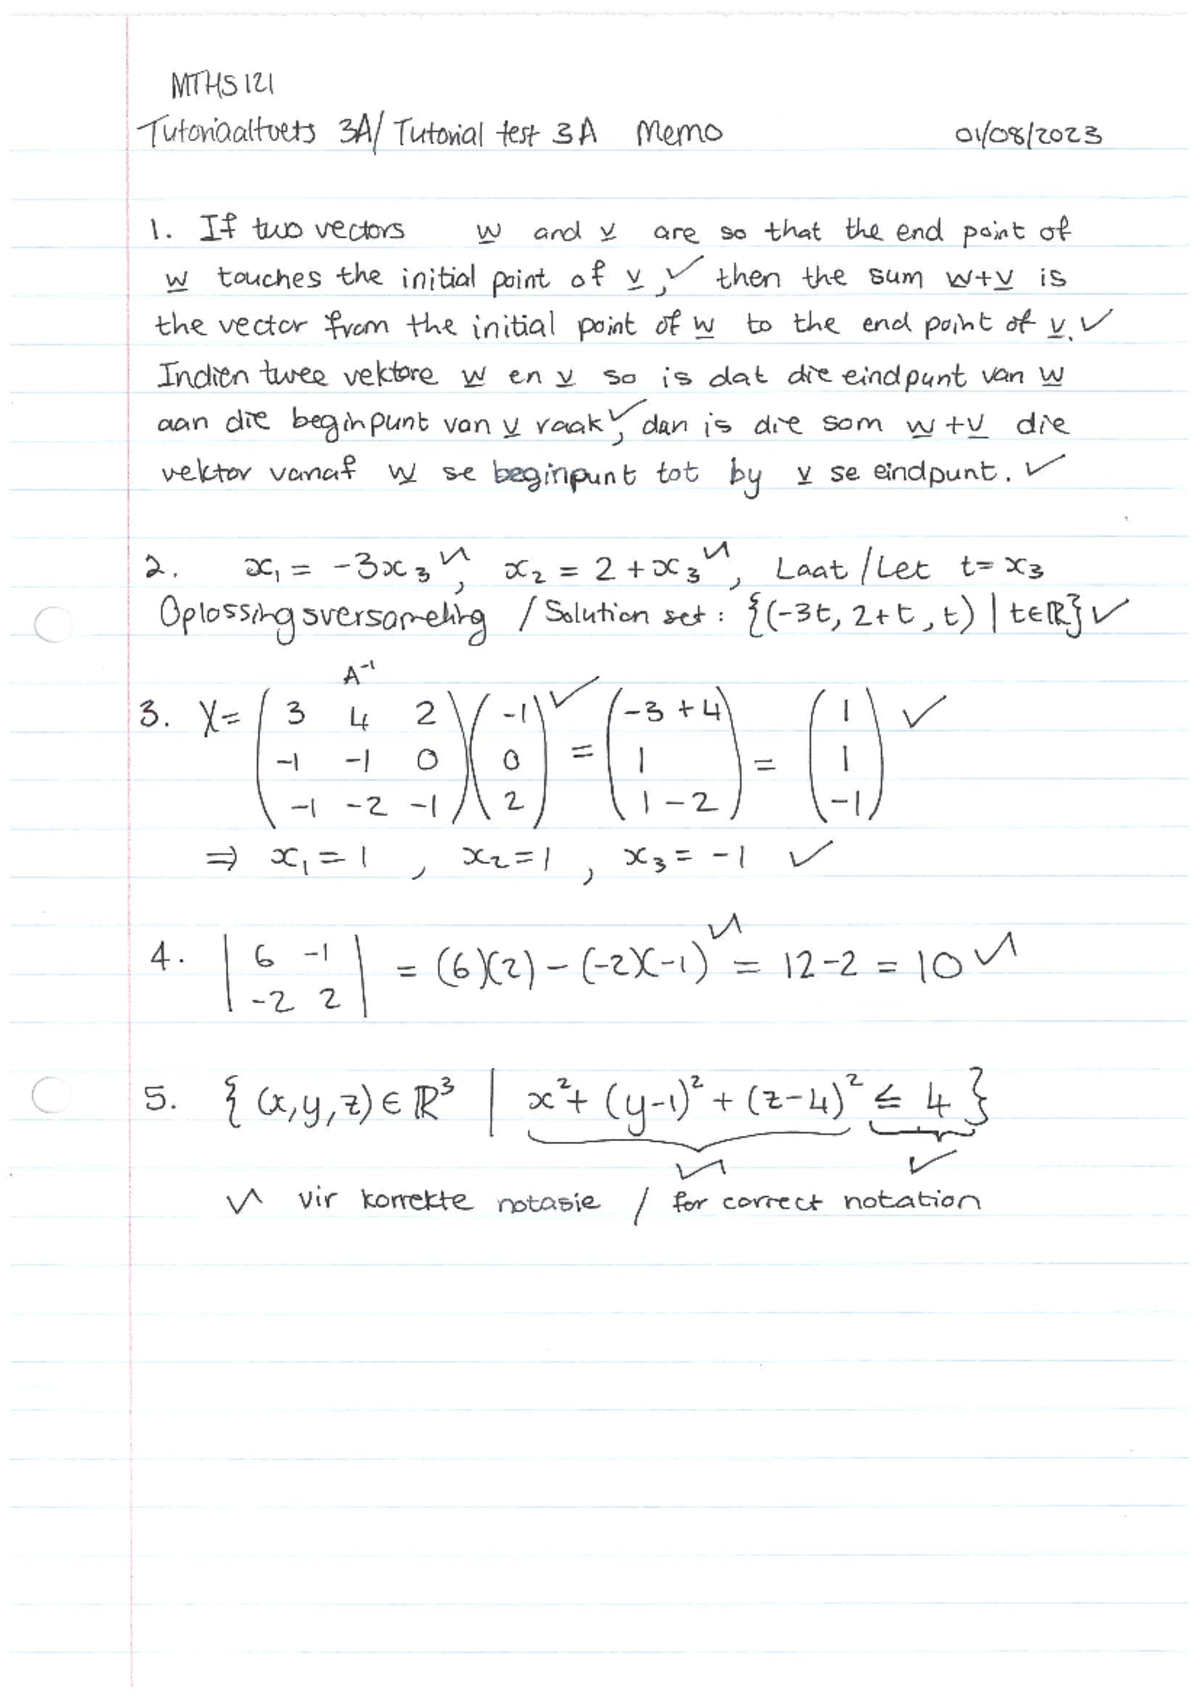 MTHS 121
Tutoriaaltoets 3A/ Tutorial test 3A Memo 01/08/2023
1. If two vectors w and v are so that the end point of
w touches the initial point of v, ✓ then the sum w+v is
the vector from the initial point of w to the end point of v. ✓
Indien twee vektore w en v so is dat die eindpunt van w
aan die beginpunt van v raak ✓, dan is die som w+v die
vektor vanaf w se beginpunt tot by v se eindpunt. ✓
2. x₁ = -3x₃ ✓, x₂ = 2 + x₃ ✓, Laat / Let t = x₃
Oplossingsversameling / Solution set : {(-3t, 2+t, t) | t∈ℝ} ✓
A⁻¹
3. X = (3 4 2) (-1) ✓ = (-3 + 4) = (1) ✓
(-1 -1 0) (0) (1) (1)
(-1 -2 -1) (2) (1 - 2) (-1)
⇒ x₁ = 1 , x₂ = 1 , x₃ = -1 ✓
4. |6 -1| = (6)(2) - (-2)(-1) ✓ = 12 - 2 = 10 ✓
|-2 2|
5. { (x,y,z) ∈ ℝ³ | x² + (y-1)² + (z-4)² ≤ 4 }
✓ ✓
✓ vir korrekte notasie / for correct notation